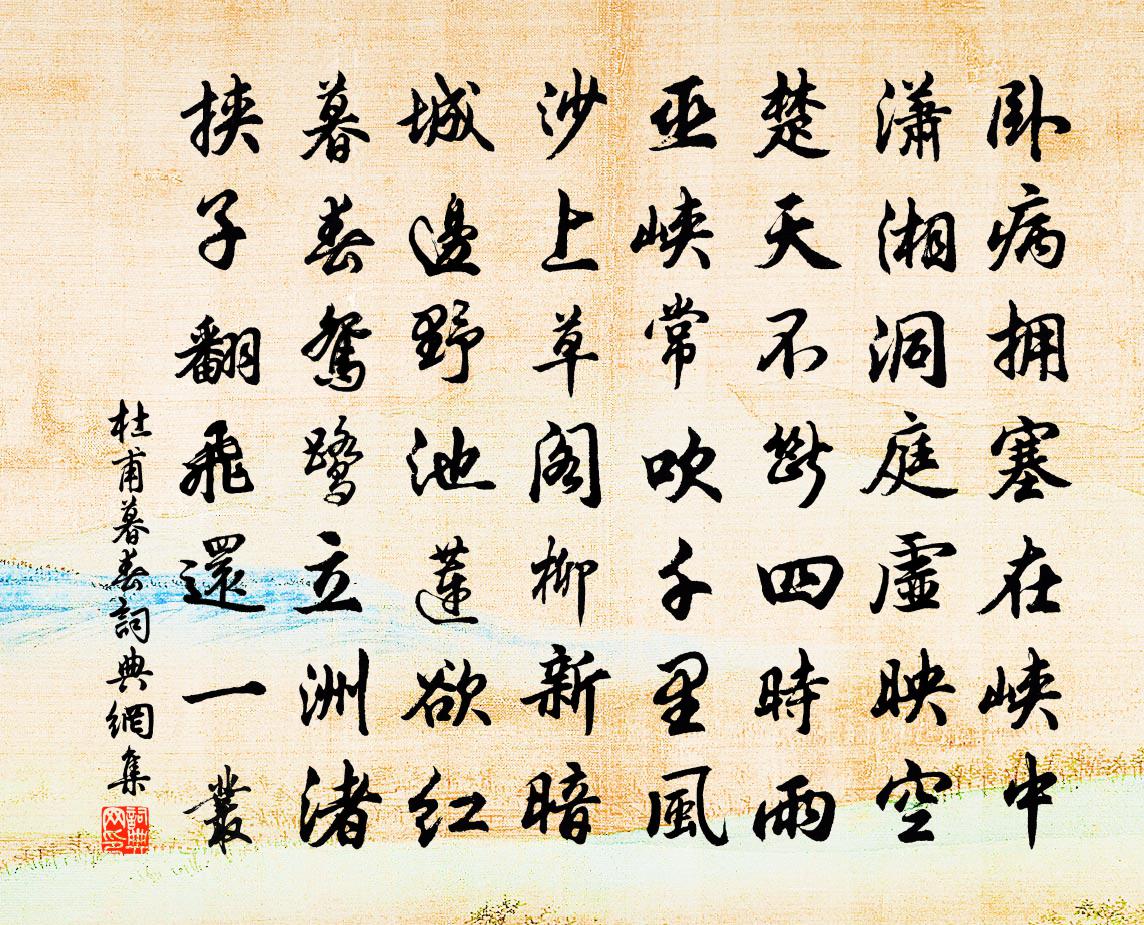 卧病拥塞在峡中
潇湘洞庭虛映空
楚天不斷四時雨
巫峡常吹千里風
沙上草阁柳新暗
城邊野池蓮欲红
暮春鴛鹭立洲渚
挟子翻飛還一叢
杜甫暮春詞典網集